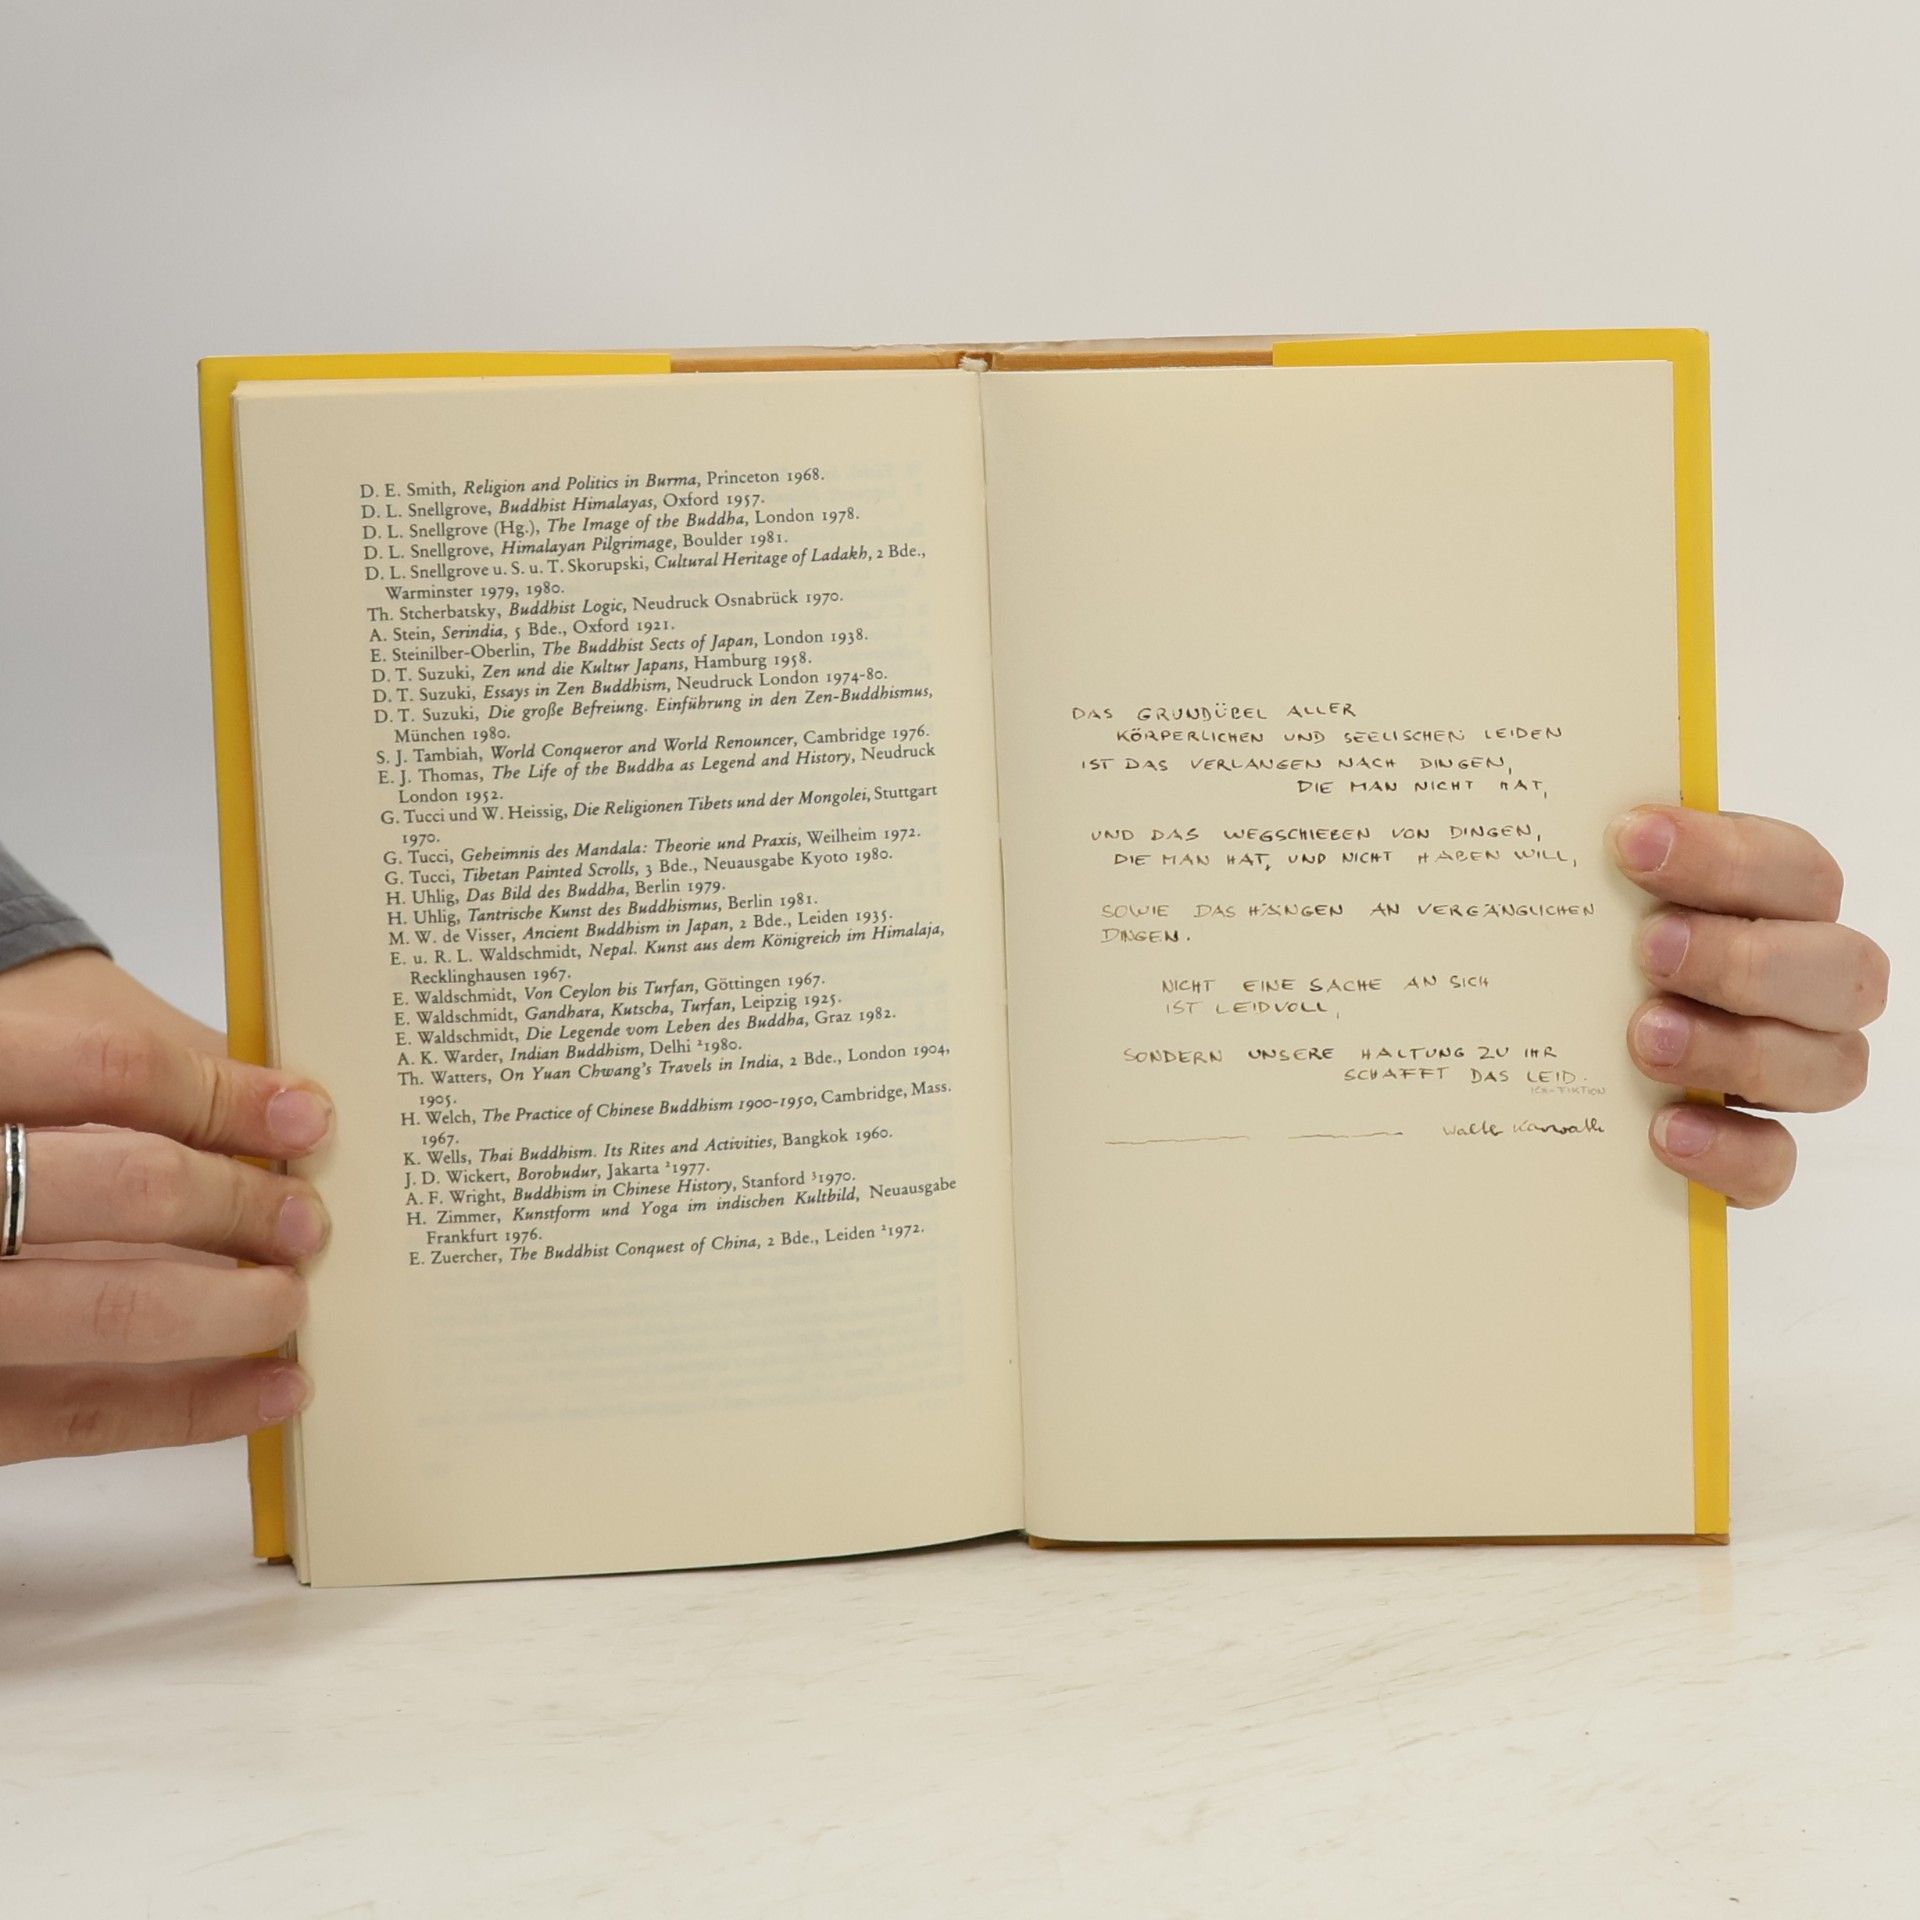 D. E. Smith, Religion and Politics in Burma, Princeton 1968.
D. L. Snellgrove, Buddhist Himalayas, Oxford 1957.
D. L. Snellgrove (Hg.), The Image of the Buddha, London 1978.
D. L. Snellgrove, Himalayan Pilgrimage, Boulder 1981.
D. L. Snellgrove u. S. u. T. Skorupski, Cultural Heritage of Ladakh, 2 Bde.,
Warminster 1979, 1980.
Th. Stcherbatsky, Buddhist Logic, Neudruck Osnabrück 1970.
A. Stein, Serindia, 5 Bde., Oxford 1921.
E. Steinilber-Oberlin, The Buddhist Sects of Japan, London 1938.
D. T. Suzuki, Zen und die Kultur Japans, Hamburg 1958.
D. T. Suzuki, Essays in Zen Buddhism, Neudruck London 1974-80.
D. T. Suzuki, Die große Befreiung. Einführung in den Zen-Buddhismus,
München 1980.
S. J. Tambiah, World Conqueror and World Renouncer, Cambridge 1976.
E. J. Thomas, The Life of the Buddha as Legend and History, Neudruck
London 1952.
G. Tucci und W. Heissig, Die Religionen Tibets und der Mongolei, Stuttgart
1970.
G. Tucci, Geheimnis des Mandala: Theorie und Praxis, Weilheim 1972.
G. Tucci, Tibetan Painted Scrolls, 3 Bde., Neuausgabe Kyoto 1980.
H. Uhlig, Das Bild des Buddha, Berlin 1979.
H. Uhlig, Tantrische Kunst des Buddhismus, Berlin 1981.
M. W. de Visser, Ancient Buddhism in Japan, 2 Bde., Leiden 1935.
E. u. R. L. Waldschmidt, Nepal. Kunst aus dem Königreich im Himalaja,
Recklinghausen 1967.
E. Waldschmidt, Von Ceylon bis Turfan, Göttingen 1967.
E. Waldschmidt, Gandhara, Kutscha, Turfan, Leipzig 1925.
E. Waldschmidt, Die Legende vom Leben des Buddha, Graz 1982.
A. K. Warder, Indian Buddhism, Delhi ²1980.
Th. Watters, On Yuan Chwang's Travels in India, 2 Bde., London 1904,
1905.
H. Welch, The Practice of Chinese Buddhism 1900-1950, Cambridge, Mass.
1967.
K. Wells, Thai Buddhism. Its Rites and Activities, Bangkok 1960.
J. D. Wickert, Borobudur, Jakarta ²1977.
A. F. Wright, Buddhism in Chinese History, Stanford ³1970.
H. Zimmer, Kunstform und Yoga im indischen Kultbild, Neuausgabe
Frankfurt 1976.
E. Zuercher, The Buddhist Conquest of China, 2 Bde., Leiden ²1972.
DAS GRUNDÜBEL ALLER
KÖRPERLICHEN UND SEELISCHEN LEIDEN
IST DAS VERLANGEN NACH DINGEN,
DIE MAN NICHT HAT,
UND DAS WEGSCHIEBEN VON DINGEN,
DIE MAN HAT, UND NICHT HABEN WILL,
SOWIE DAS HÄNGEN AN VERGÄNGLICHEN
DINGEN.
NICHT EINE SACHE AN SICH
IST LEIDVOLL,
SONDERN UNSERE HALTUNG ZU IHR
SCHAFFT DAS LEID.
ICH-FIKTION
Walter Karwath